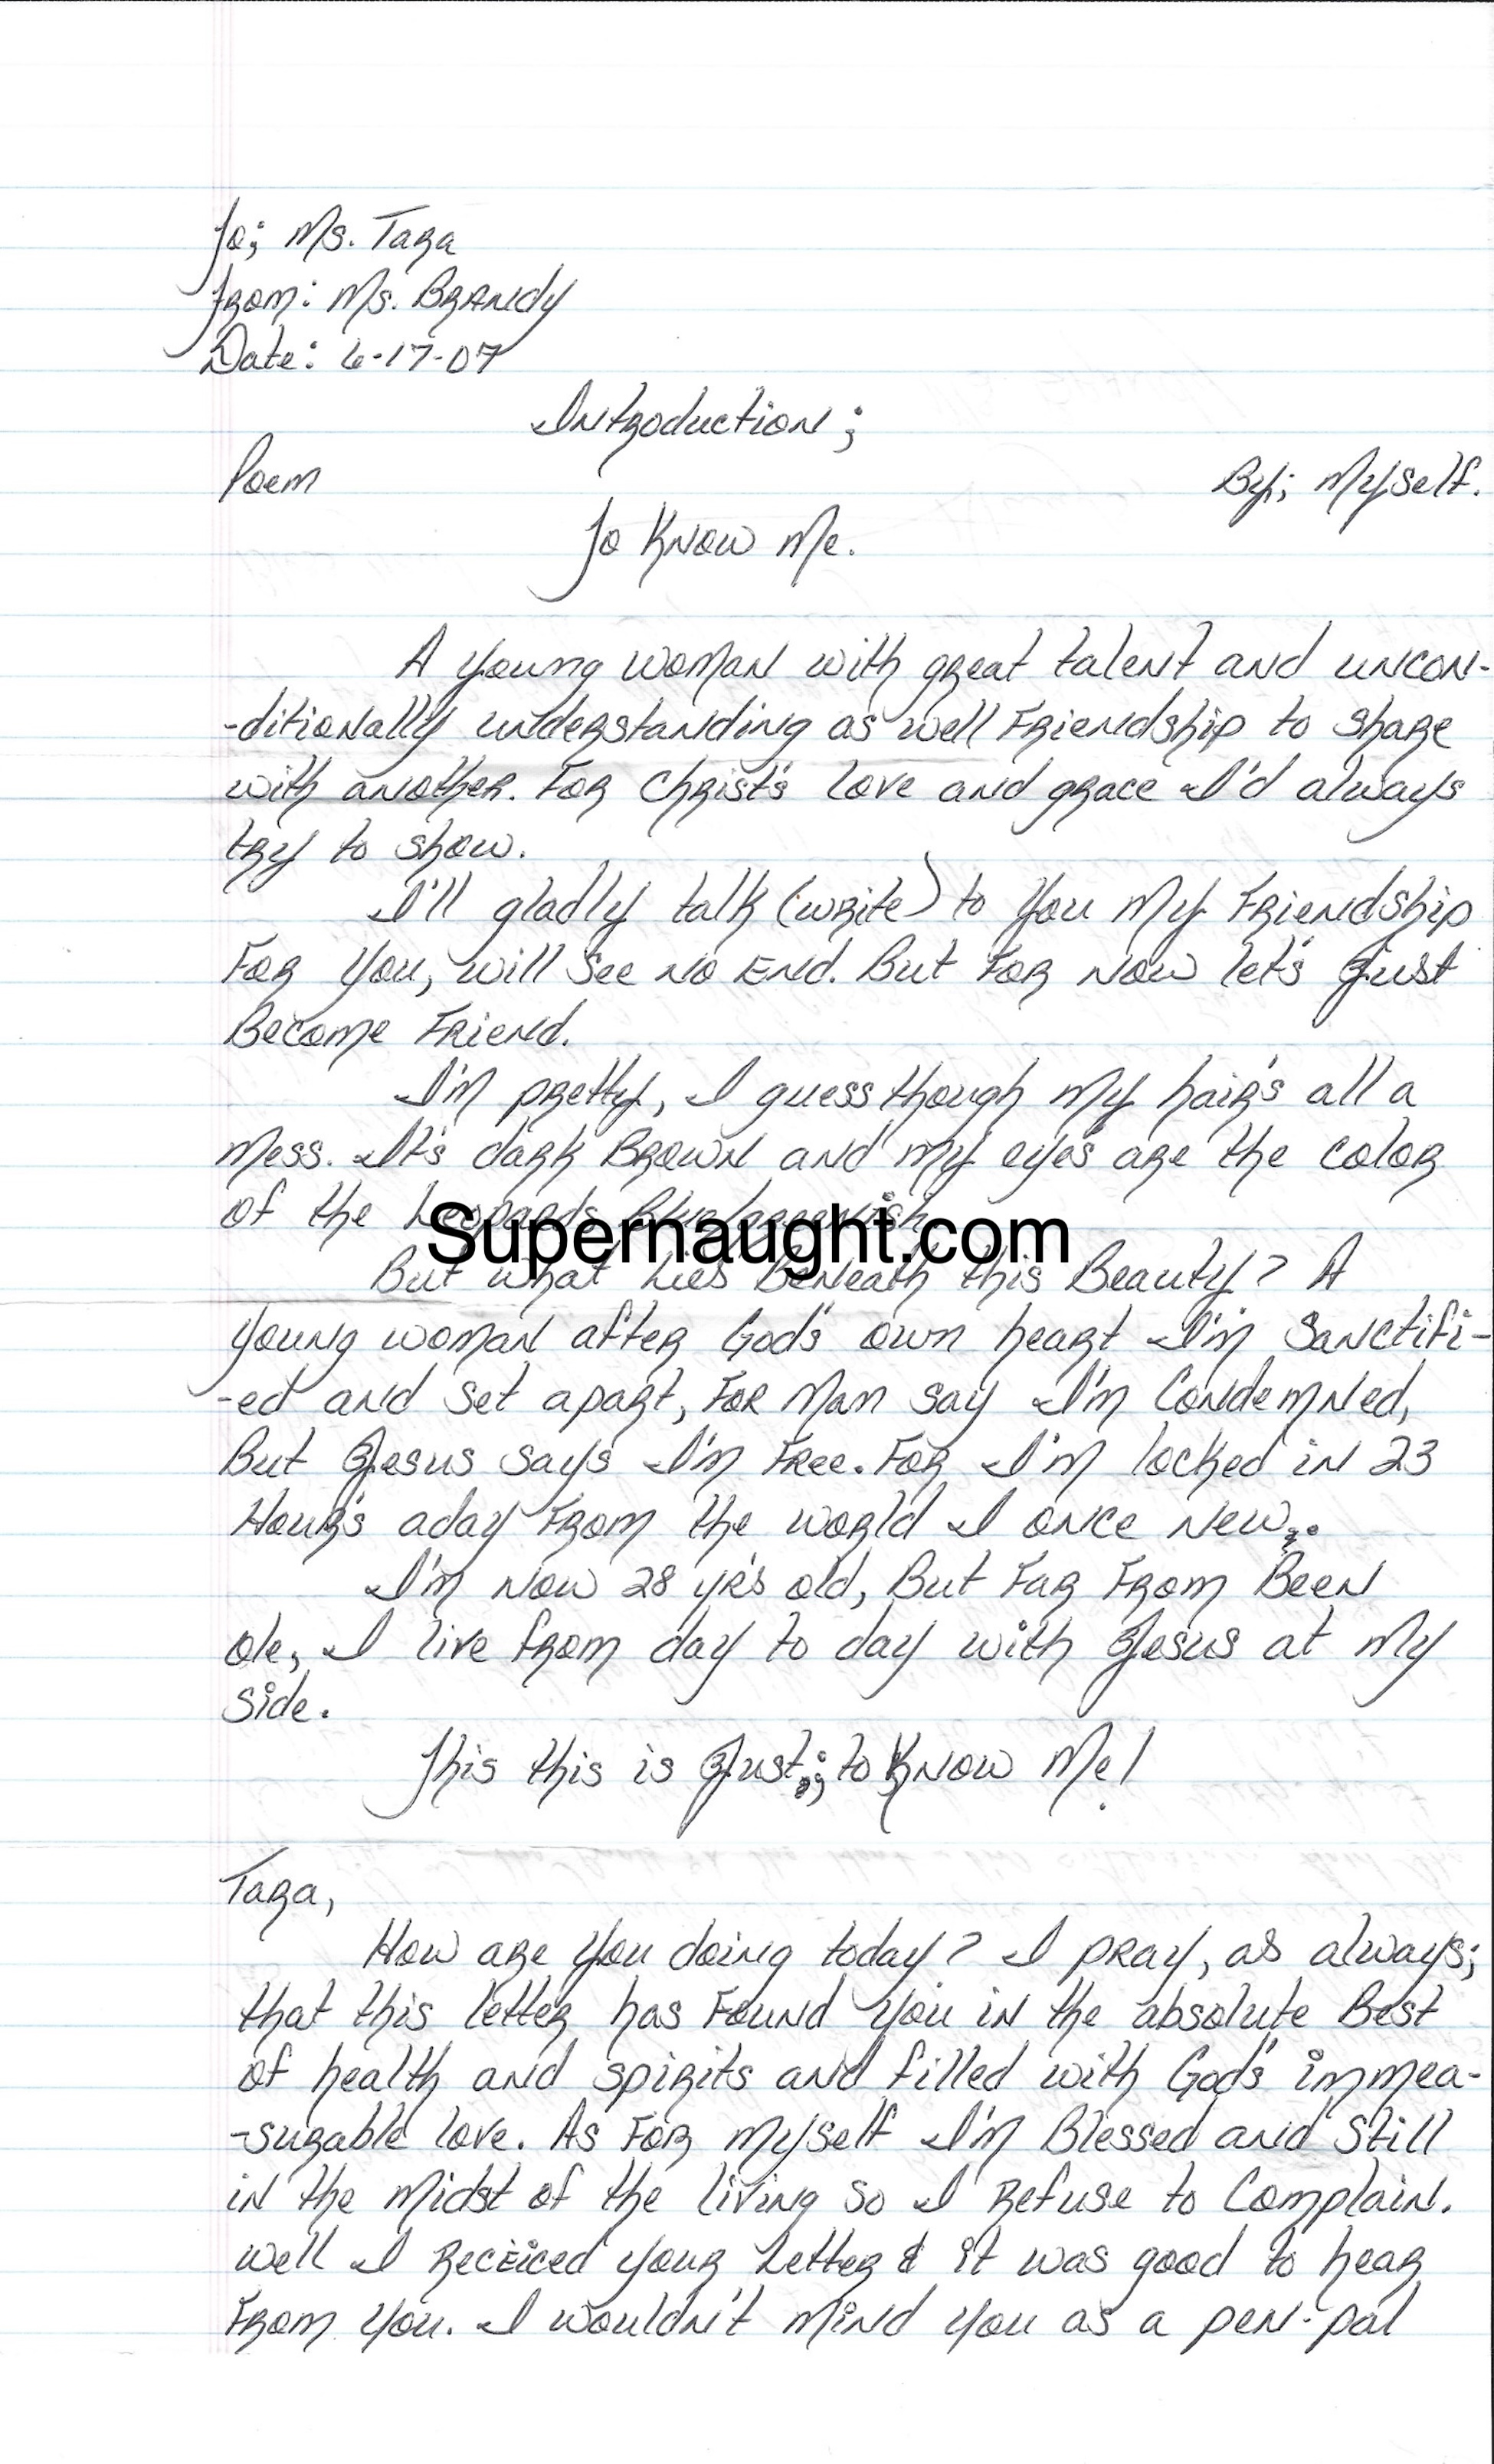 To; Ms. Tara
From: Ms. Brandy
Date: 6-17-07
Introduction;
Poem By; Myself.
To Know Me.
A young woman with great talent and uncon-
-ditionally understanding as well Friendship to share
with another. For Christ's love and grace I'd always
try to show.
I'll gladly talk (write) to you My Friendship
For You, will See no End. But For Now let's Just
Become Friend.
I'm pretty, I guess though My hair's all a
Mess. It's dark Brown and my eyes are the color
of the Leopards
Supernaught.com
But what Lies Beneath this Beauty? A
young woman after God's own heart I'm Sanctifi-
-ed and Set apart, For Man say I'm Condemned,
But Jesus says I'm Free. For I'm locked in 23
Hour's aday From the world I once New..
I'm now 28 yr's old, But Far From Been
ole, I live from day to day with Jesus at My
Side.
This this is Just;; to Know Me!
Tara,
How are you doing today? I pray, as always;
that this letter has Found you in the absolute Best
of health and spirits and filled with God's immea-
-surable love. As For Myself I'm Blessed and Still
in the Midst of the living so I Refuse to Complain.
Well I Receiced your Letter & it was good to hear
From you. I wouldn't Mind you as a pen-pal